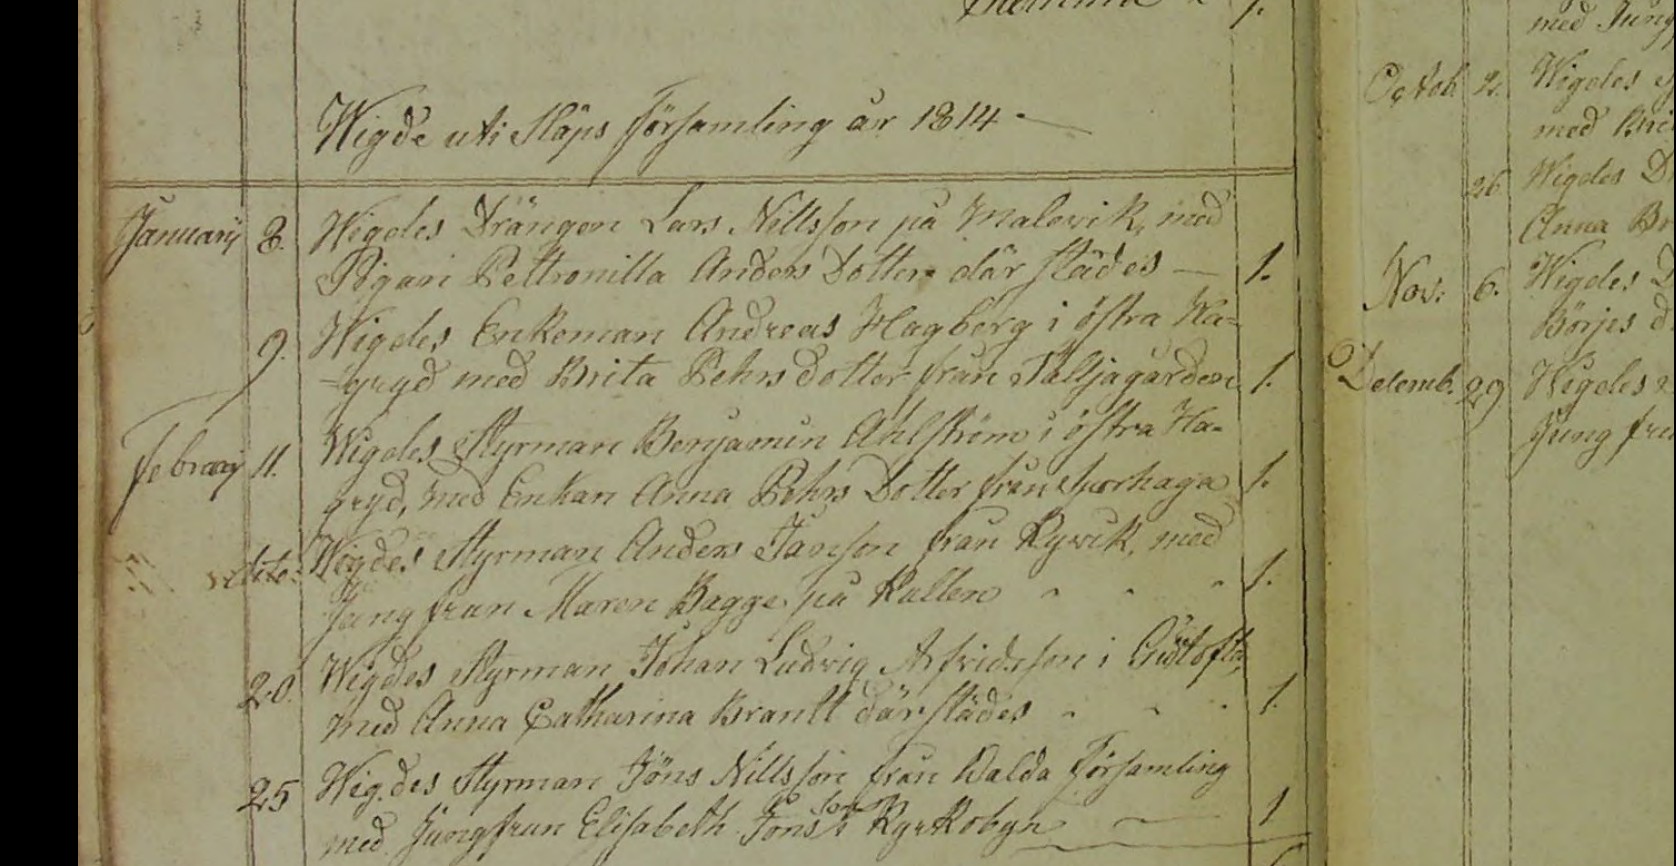 Wigde uti Släps Församling år 1814
Januarij 8. Wigdes Drängen Lars Nillsson på Malevik, med
Pigan Pettronilla Anders Dotter där städes — 1.
9. Wigdes Enkeman Andreas Hagberg i östra Ha=
=gryd med Brita Pehrsdotter från Tälljagården 1.
Februarij 11. Wigdes Styrman Benjamin Ahlström i östra Ha=
gryd, med Enkan Anna Pehrs Dotter från 1.
dito: Wigdes Styrman Anders Janson från Ryvik, med
Jungfrun Maren Bagge på Kullen 1.
20. Wigdes Styrman Johan Ludvig Arfvidsson i
med Anna Catharina Brantt där städes 1.
25 Wigdes Styrman Jöns Nillsson från Walda Församling
med Jungfrun Elisabeth Kyrkobyn 1
med Jung
Octob. 2. Wigdes
med Bri
26 Wigdes D
Anna B
Nov: 6. Wigdes D
Börjes d
Decemb. 29 Wigdes
Jungfru